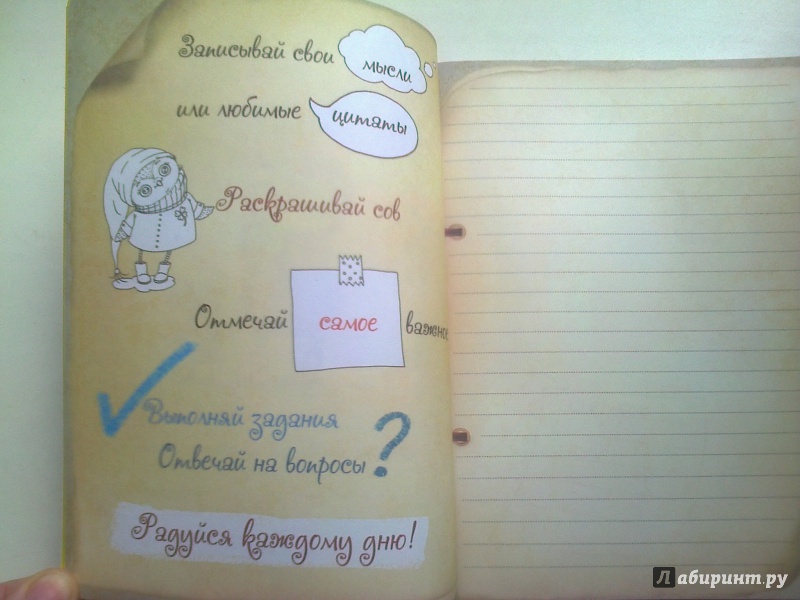 Записывай свои мысли
или любимые цитаты
Раскрашивай сов
Отмечай самое важное
Выполняй задания
Отвечай на вопросы ?
Радуйся каждому дню!
Лабиринт.ру